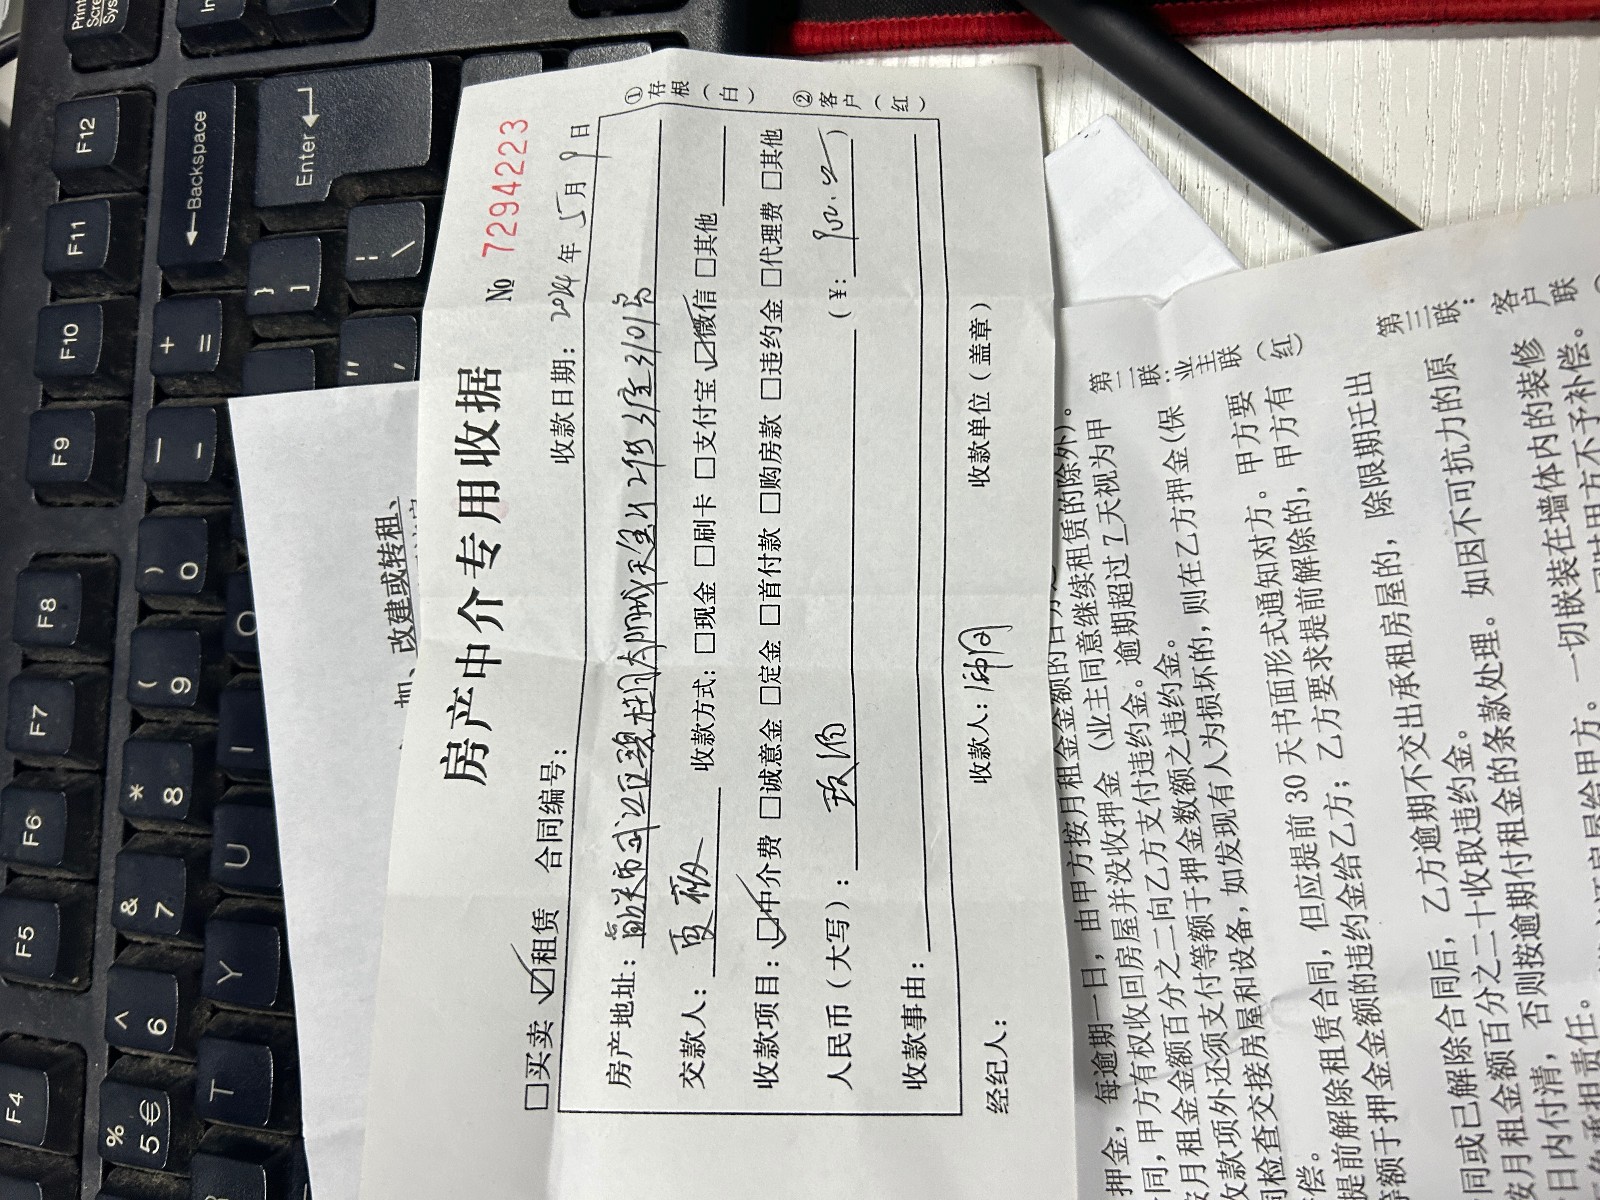 房产中介专用收据
№ 7294223
□买卖 ☑租赁 合同编号：
收款日期：2024年5月9日
房产地址：韶关市武江区碧桂园太阳城天玺片2街3座3101房
交款人：夏薇 收款方式：□现金 □刷卡 □支付宝 ☑微信 □其他
收款项目：☑中介费 □诚意金 □定金 □首付款 □购房款 □违约金 □代理费 □其他
人民币（大写）：玖佰 （¥：900.00）
收款事由：
经纪人： 收款人： 收款单位（盖章）
①存根（白） ②客户（红）
改建或转租、
第二联：业主联（红）
第三联：客户联
押金，每逾期一日，由甲方按月租金金额的百分
同，甲方有权收回房屋并没收押金（业主同意继续租赁的除外）。
按月租金金额百分之二向乙方支付违约金。逾期超过7天视为甲
收款项外还须支付等额于押金数额之违约金。
同检查交接房屋和设备，如发现有人为损坏的，则在乙方押金（保
偿。
提前解除租赁合同，但应提前30天书面形式通知对方。甲方要
等额于押金金额的违约金给乙方；乙方要求提前解除的，甲方有
同或已解除合同后，乙方逾期不交出承租房屋的，除限期迁出
按月租金额百分之二十收取违约金。
日内付清，否则按逾期付租金的条款处理。如因不可抗力的原
承担责任。
房屋给甲方。一切嵌装在墙体内的装修
甲方不予补偿。
Print
Scrn
Sys
F12
F11
F10
F9
F8
F7
F6
F5
F4
←Backspace
Enter
+
=
)
0
(
9
*
8
&
7
^
6
%
5 €
O
I
U
Y
T